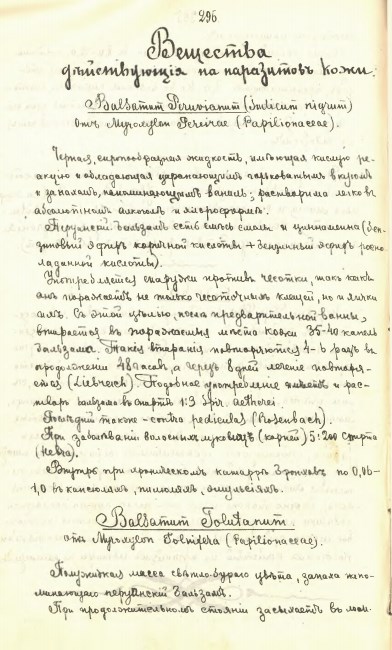 296
Вещества
дѣйствующія на паразитовъ кожи.
Balsamum Peruvianum (indicum nigrum)
отъ Myroxylon Pereirae (Papilionaceae).
Черная, сиропообразная жидкость, имѣющая кислую ре-
акцію и обладающая царапающимъ горьковатымъ вкусомъ
и запахомъ, напоминающимъ ваниль; растворима легко въ
абсолютномъ алкоголѣ и хлороформѣ.
Перуанскій бальзамъ есть смѣсь смолы и циннамеина (бен-
зиловый эфиръ коричной кислоты + бензинный эфиръ росно-
ладанной кислоты).
Употребляется снаружи противъ чесотки, такъ какъ
онъ поражаетъ не только чесоточныхъ клещей, но и яички
ихъ. Съ этой цѣлью, послѣ предварительной ванны,
втирается въ пораженныя мѣста кожи 35-40 капель
бальзама. Такія втиранія повторяются 4- разъ въ
продолженіи 48 часовъ, а черезъ 8 дней леченіе повторя-
ется (Liebreich). Подобное употребленіе имѣетъ и рас-
творъ бальзама въ спиртѣ 1:3 Spir. aetherei.
Послѣдній также - contra pediculos (Rosenbach).
При заболѣваніи волосныхъ луковицъ (корней) 5:200 спирта
(Hebra).
Внутрь при хроническомъ катаррѣ бронховъ по 0,06-
1,0 въ капсюляхъ, пилюляхъ, эмульсіяхъ.
Balsamum Tolutanum.
отъ Myroxylon Toluifera (Papilionaceae).
Полужидкая масса свѣтло-бураго цвѣта, запаха напо-
минающаго перуанскій бальзамъ.
При продолжительномъ стояніи засыхаетъ въ лом-